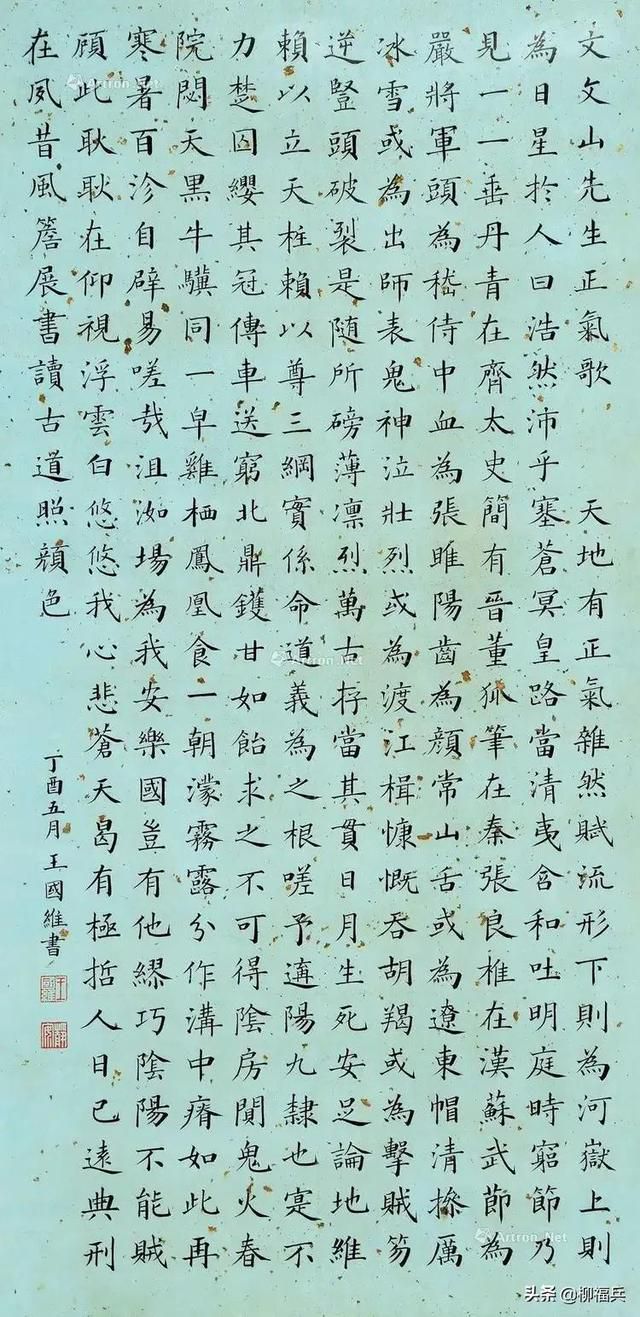 文文山先生正氣歌 天地有正氣雜然賦流形下則為河嶽上則
為日星於人曰浩然沛乎塞蒼冥皇路當清夷含和吐明庭時窮節乃
見一一垂丹青在齊太史簡有晉董狐筆在秦張良椎在漢蘇武節為
嚴將軍頭為嵇侍中血為張睢陽齒為顏常山舌或為遼東帽清操厲
冰雪或為出師表鬼神泣壯烈或為渡江楫慷慨吞胡羯或為擊賊笏
逆豎頭破裂是随所磅薄凛烈萬古存當其貫日月生死安足論地維
賴以立天柱賴以尊三綱實係命道義為之根嗟予遘陽九隸也寔不
力楚囚纓其冠傳車送窮北鼎鑊甘如飴求之不可得陰房闃鬼火春
院閟天黑牛驥同一皁雞栖鳳凰食一朝濛霧露分作溝中瘠如此再
寒暑百沴自辟易嗟哉沮洳場為我安樂國豈有他繆巧陰陽不能賊
顧此耿耿在仰視浮雲白悠悠我心悲蒼天曷有極哲人日已遠典刑
在夙昔風簷展書讀古道照顏色
丁酉五月王國維書
Artron.Net
Artron.Net
Artron.Net
Artron.Net
头条 @柳福兵